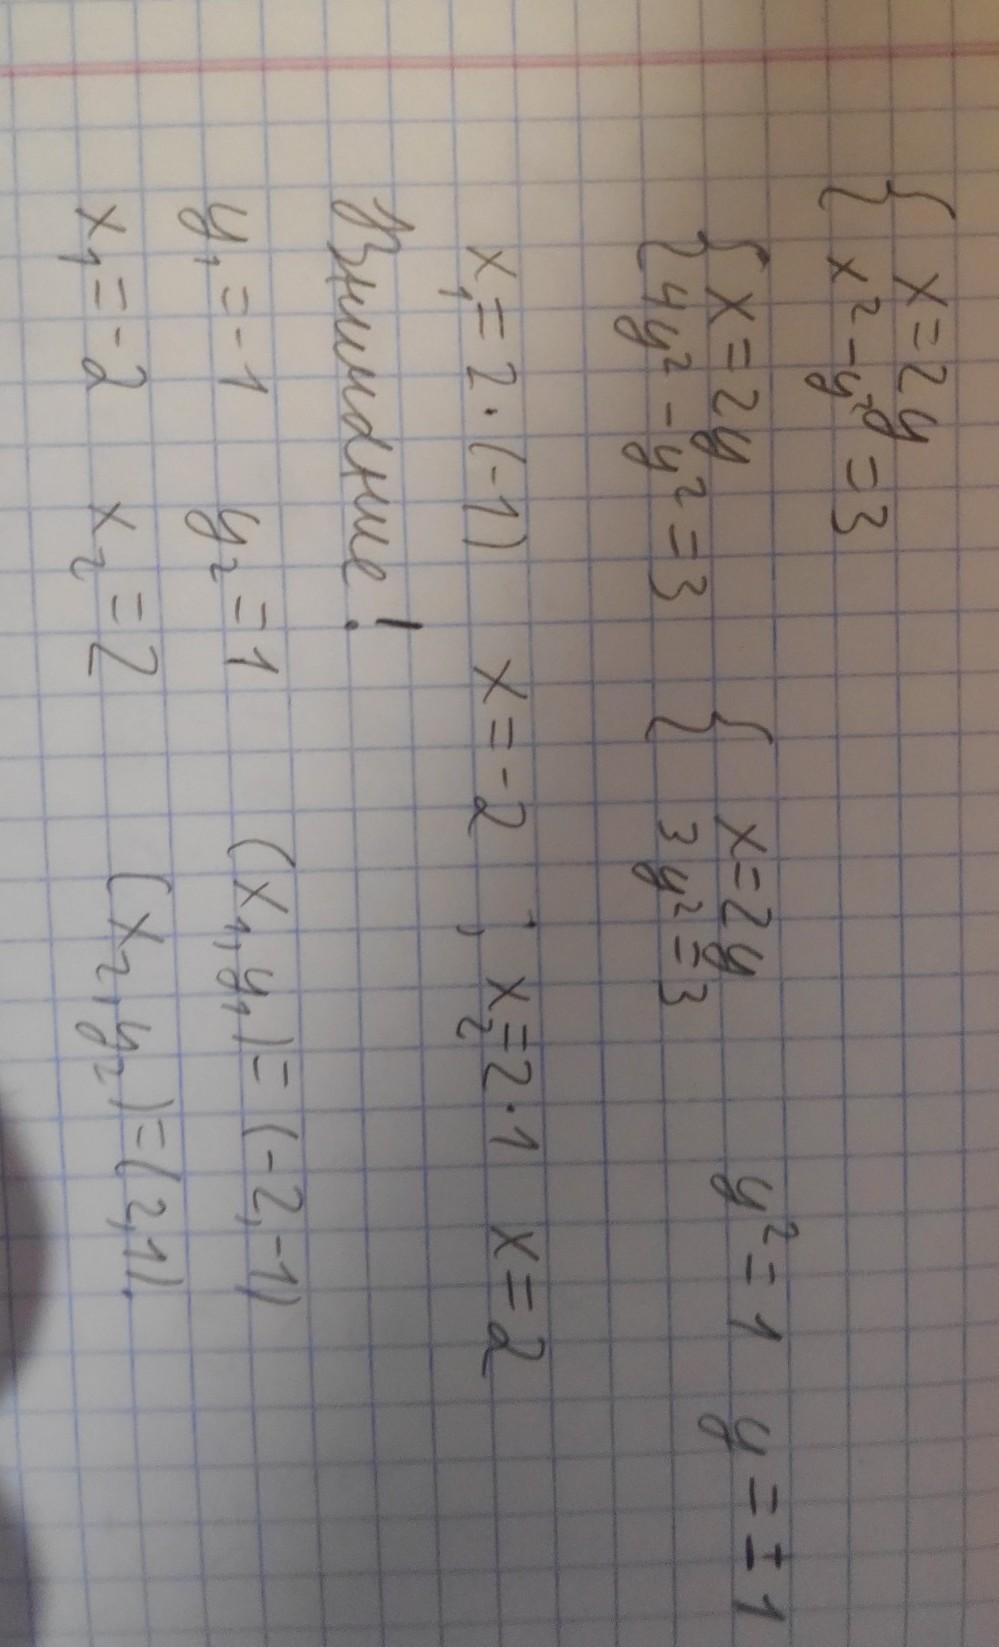 { x = 2y
x² - y² = 3
{ x = 2y { x = 2y y² = 1 y = ± 1
4y² - y² = 3 3y² = 3
x₁ = 2 · (-1) x = -2 ; x₂ = 2 · 1 x = 2
Внимание!
y₁ = -1 y₂ = 1 (x₁, y₁) = (-2, -1)
x₁ = -2 x₂ = 2 (x₂, y₂) = (2, 1).